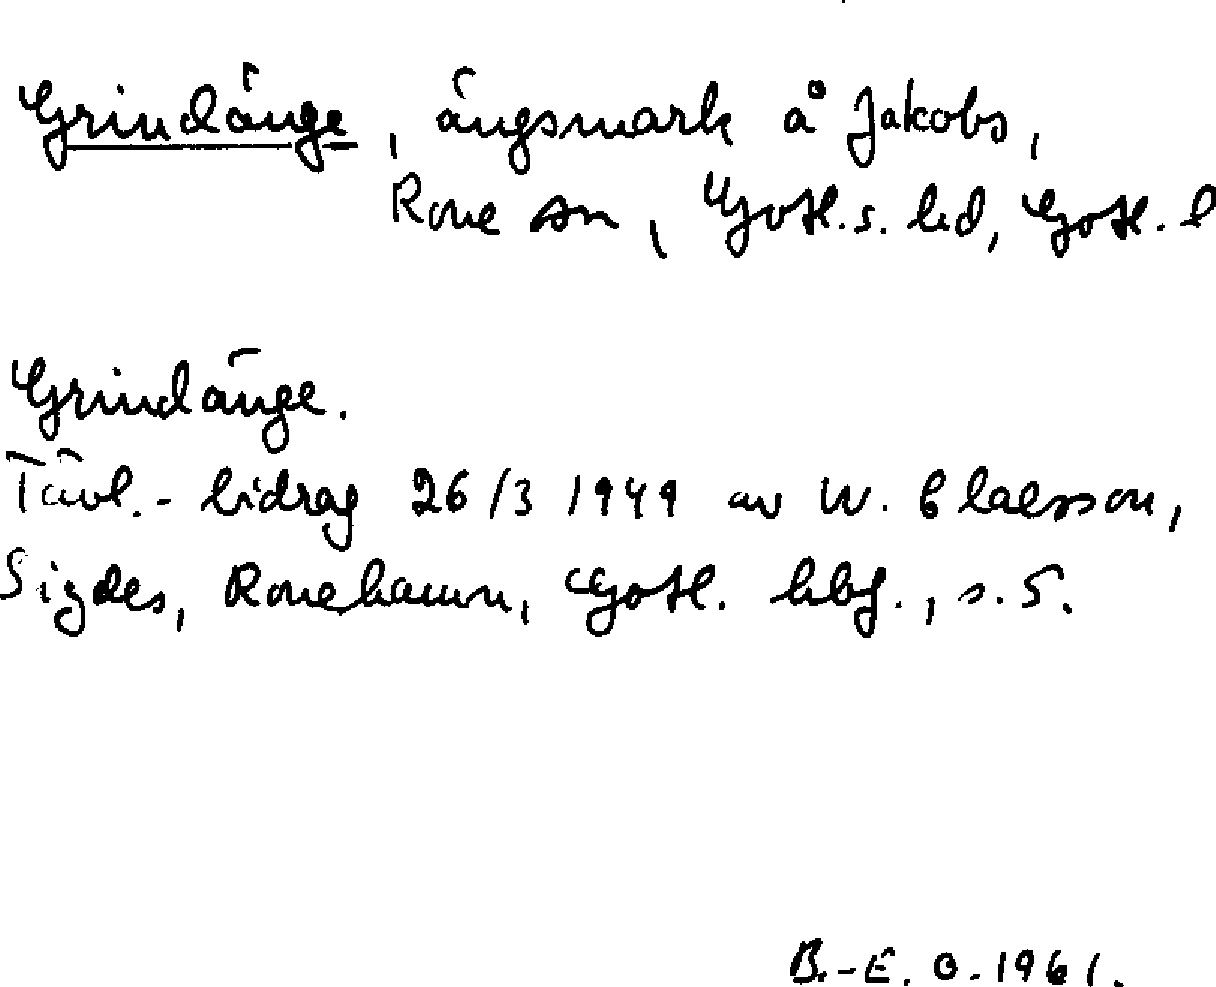 Grindänge, ängsmark å Jakobs,
Rone sn, Gotl. s. hd, Gotl. l
Grindänge.
Tävl.-bidrag 26/3 1949 av W. Claesson,
Sigdes, Ronehamn, Gotl. hbf., s. 5.
B.-E. O. 1961.